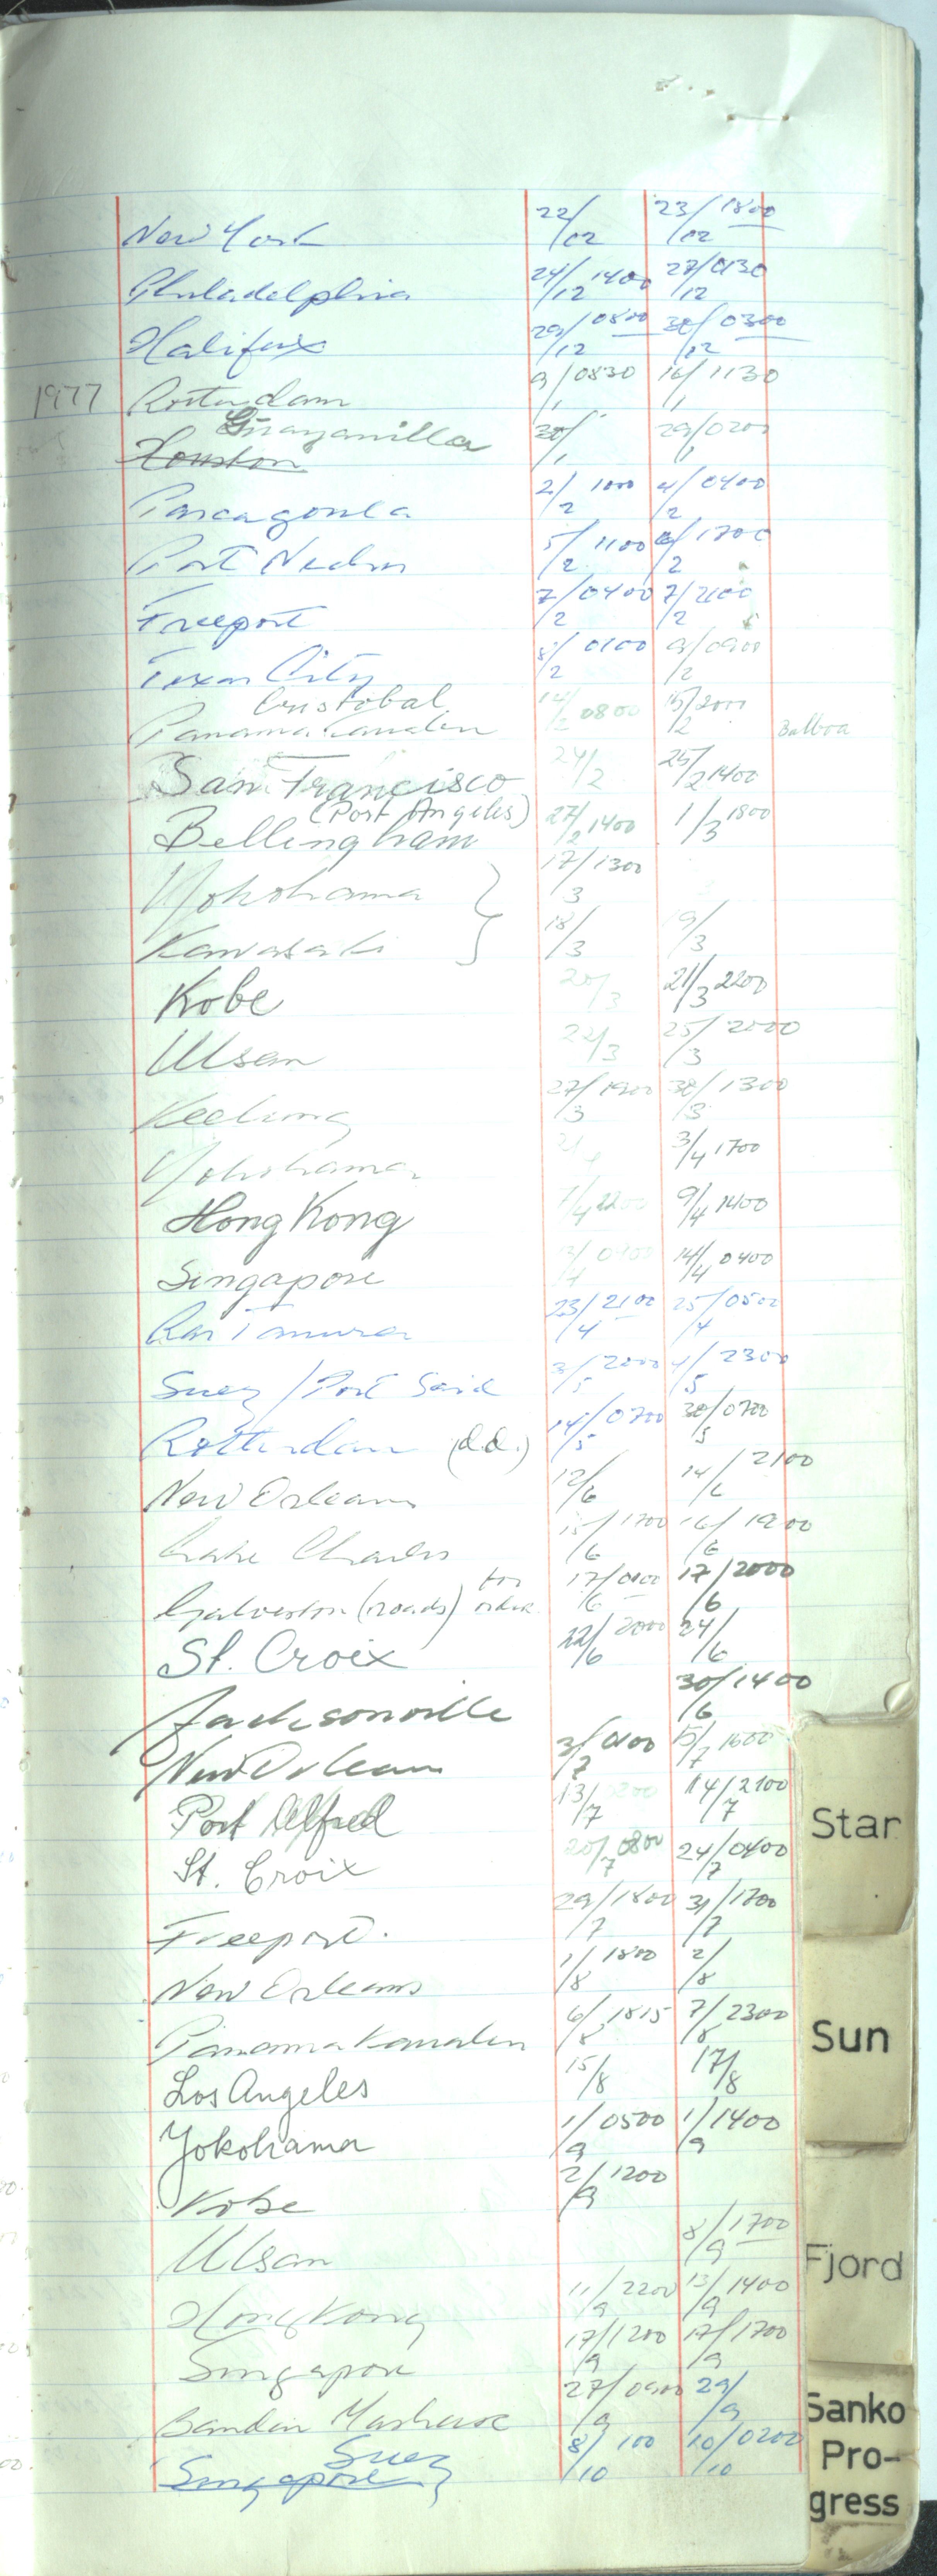 New York 22/12 23/12 1800
Philadelphia 24/12 1400 27/12 0130
Halifax 29/12 0800 30/12 0300
1977 Rotterdam 9/1 0830 16/1 1130
Guayanilla
Houston 30/1 29/1 0200
Pascagoula 2/2 1000 4/2 0400
Port Neches 5/2 1100 6/2 1700
Freeport 7/2 0400 7/2 2100
Texas City 8/2 0100 9/2 0900
Cristobal
Panama Kanalen 14/2 0800 15/2 2000 Balboa
San Francisco 24/2 25/2 1400
(Port Angeles)
Bellingham 27/2 1400 1/3 1800
Yokohama 17/3 1300
Kawasaki 18/3 19/3
Kobe 20/3 21/3 2200
Ulsan 22/3 25/3 2000
Keelung 27/3 1900 30/3 1300
Yokohama 2/4 3/4 1700
Hong Kong 7/4 2200 9/4 1400
Singapore 13/4 14/4 0400
Ras Tanura 23/4 2100 25/4 0500
Suez / Port Said 3/5 2000 4/5 2300
Rotterdam (d.d.) 14/5 0700 30/5 0700
New Orleans 12/6 14/6 2100
Lake Charles 15/6 1700 16/6 1900
Galveston (roads) for order 17/6 0100 17/6 2000
St. Croix 22/6 2000 24/6
Jacksonville 30/6 1400
New Orleans 3/7 0100 15/7 1600
Port Alfred 13/7 14/7 2100
St. Croix 20/7 0800 24/7 0400
Freeport. 29/7 1800 31/7 1700
New Orleans 1/8 1800 2/8
Panama Kanalen 6/8 1815 7/8 2300
Los Angeles 15/8 17/8
Yokohama 1/9 0500 1/9 1400
Kobe 2/9 1200
Ulsan 8/9 1700
Hong Kong 11/9 2200 13/9 1400
Singapore 17/9 1200 17/9 1700
Bandar Mashur 27/9 0900 29/9
Suez
Singapore 8/10 100 10/10 0200
Star
Sun
Fjord
Sanko
Pro-
gress